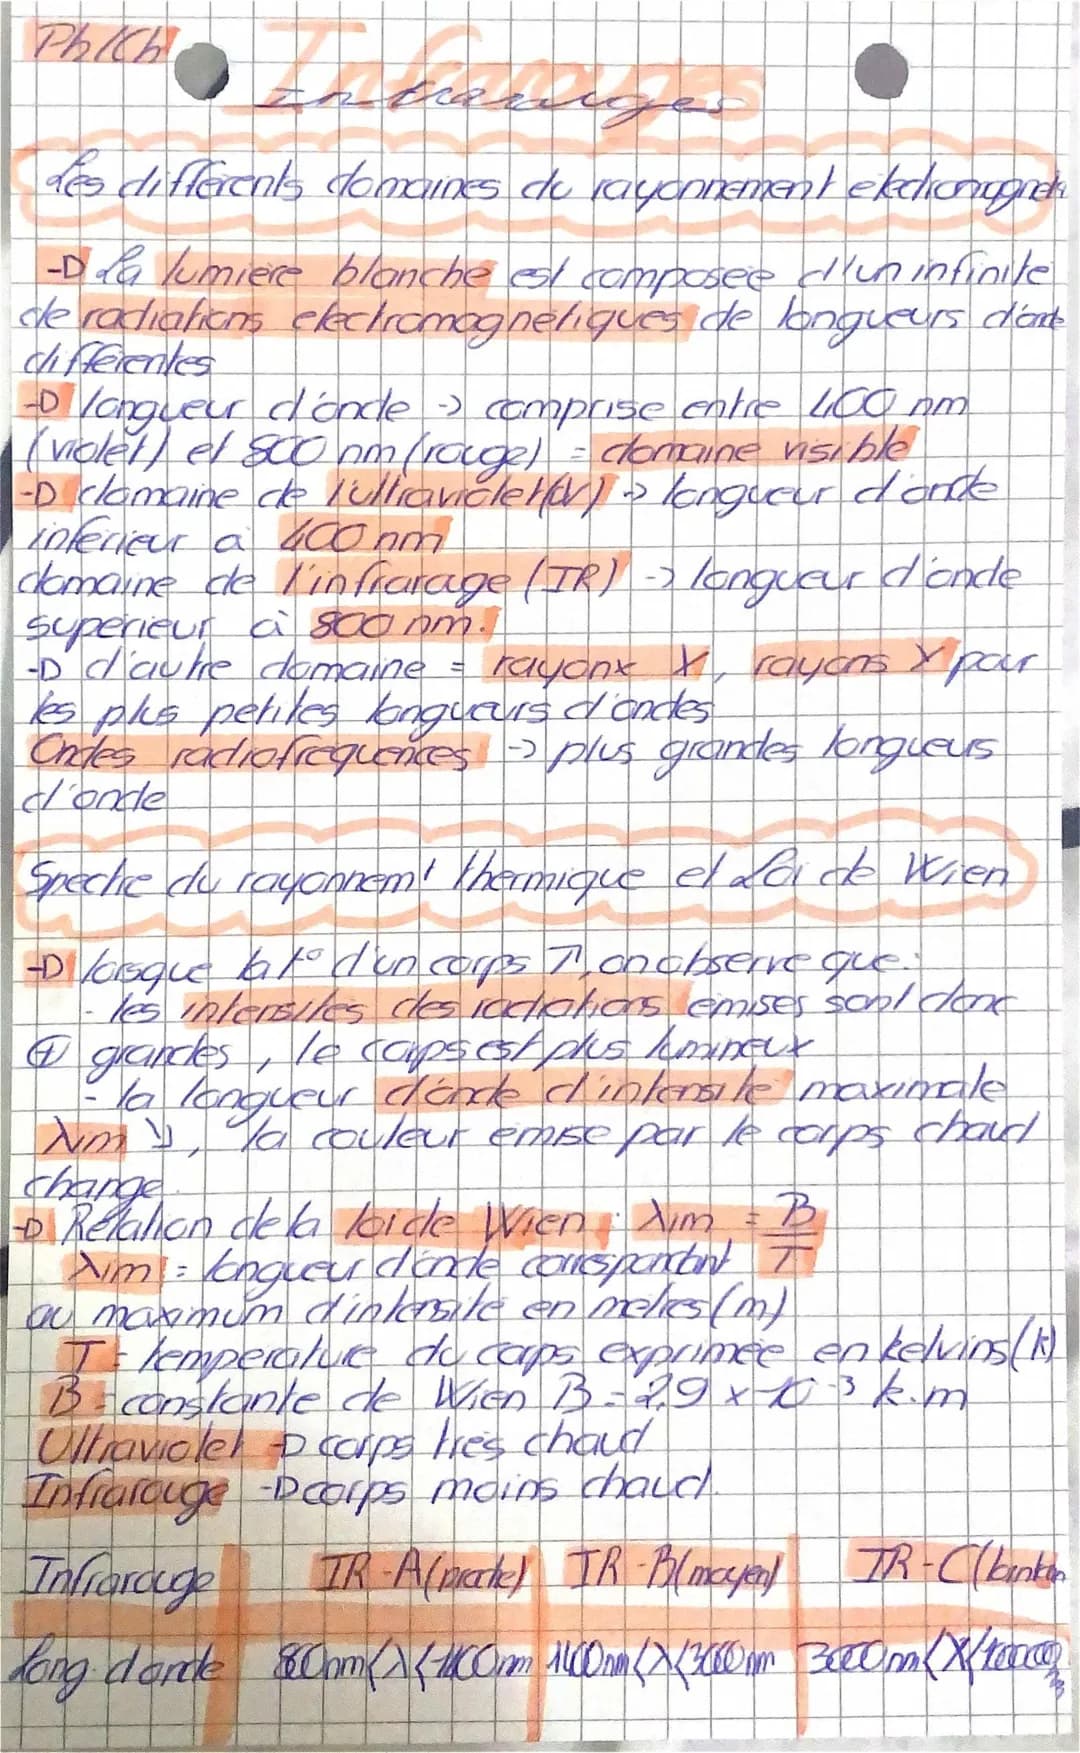 Ph/Ch
Infrarouges
Les différents domaines du rayonnement electromagnét
-D La lumière blanche est composée d'un infinité
de radiations electromagnétiques de longueurs d'onde
différentes
-D longueur d'onde -> comprise entre 400 nm
(violet) et 800 nm (rouge) = domaine visible
-D domaine de l'ultraviolet (UV) -> longueur d'onde
inférieur à 400 nm
domaine de l'infrarouge (IR) -> longueur d'onde
supérieur à 800 nm.
-D d'autre domaine = rayonx X, rayons γ pour
les plus petites longueurs d'ondes
Ondes radiofréquences -> plus grandes longueurs
d'onde
Spectre du rayonnemt thermique et Loi de Wien
-D lorsque la t° d'un corps ↗, on observe que :
- les intensités des radiations émises sont donc
⊕ grandes, le corps est plus lumineux
- la longueur d'onde d'intensité maximale
λim ↘, la couleur émise par le corps chaud
change.
-D Relation de la loi de Wien : λim = B/T
λim = longueur d'onde correspondant
au maximum d'intensité en mètres (m)
T = température du corps exprimée en kelvins (K)
B = constante de Wien B = 2,9 × 10⁻³ k.m
Ultraviolet -D corps très chaud
Infrarouge -D corps moins chaud.
Infrarouge IR-A (proche) IR-B (moyen) IR-C (lointain
long. d'onde 800nm<λ<1400nm 1400nm<λ<3000nm 3000nm<λ<